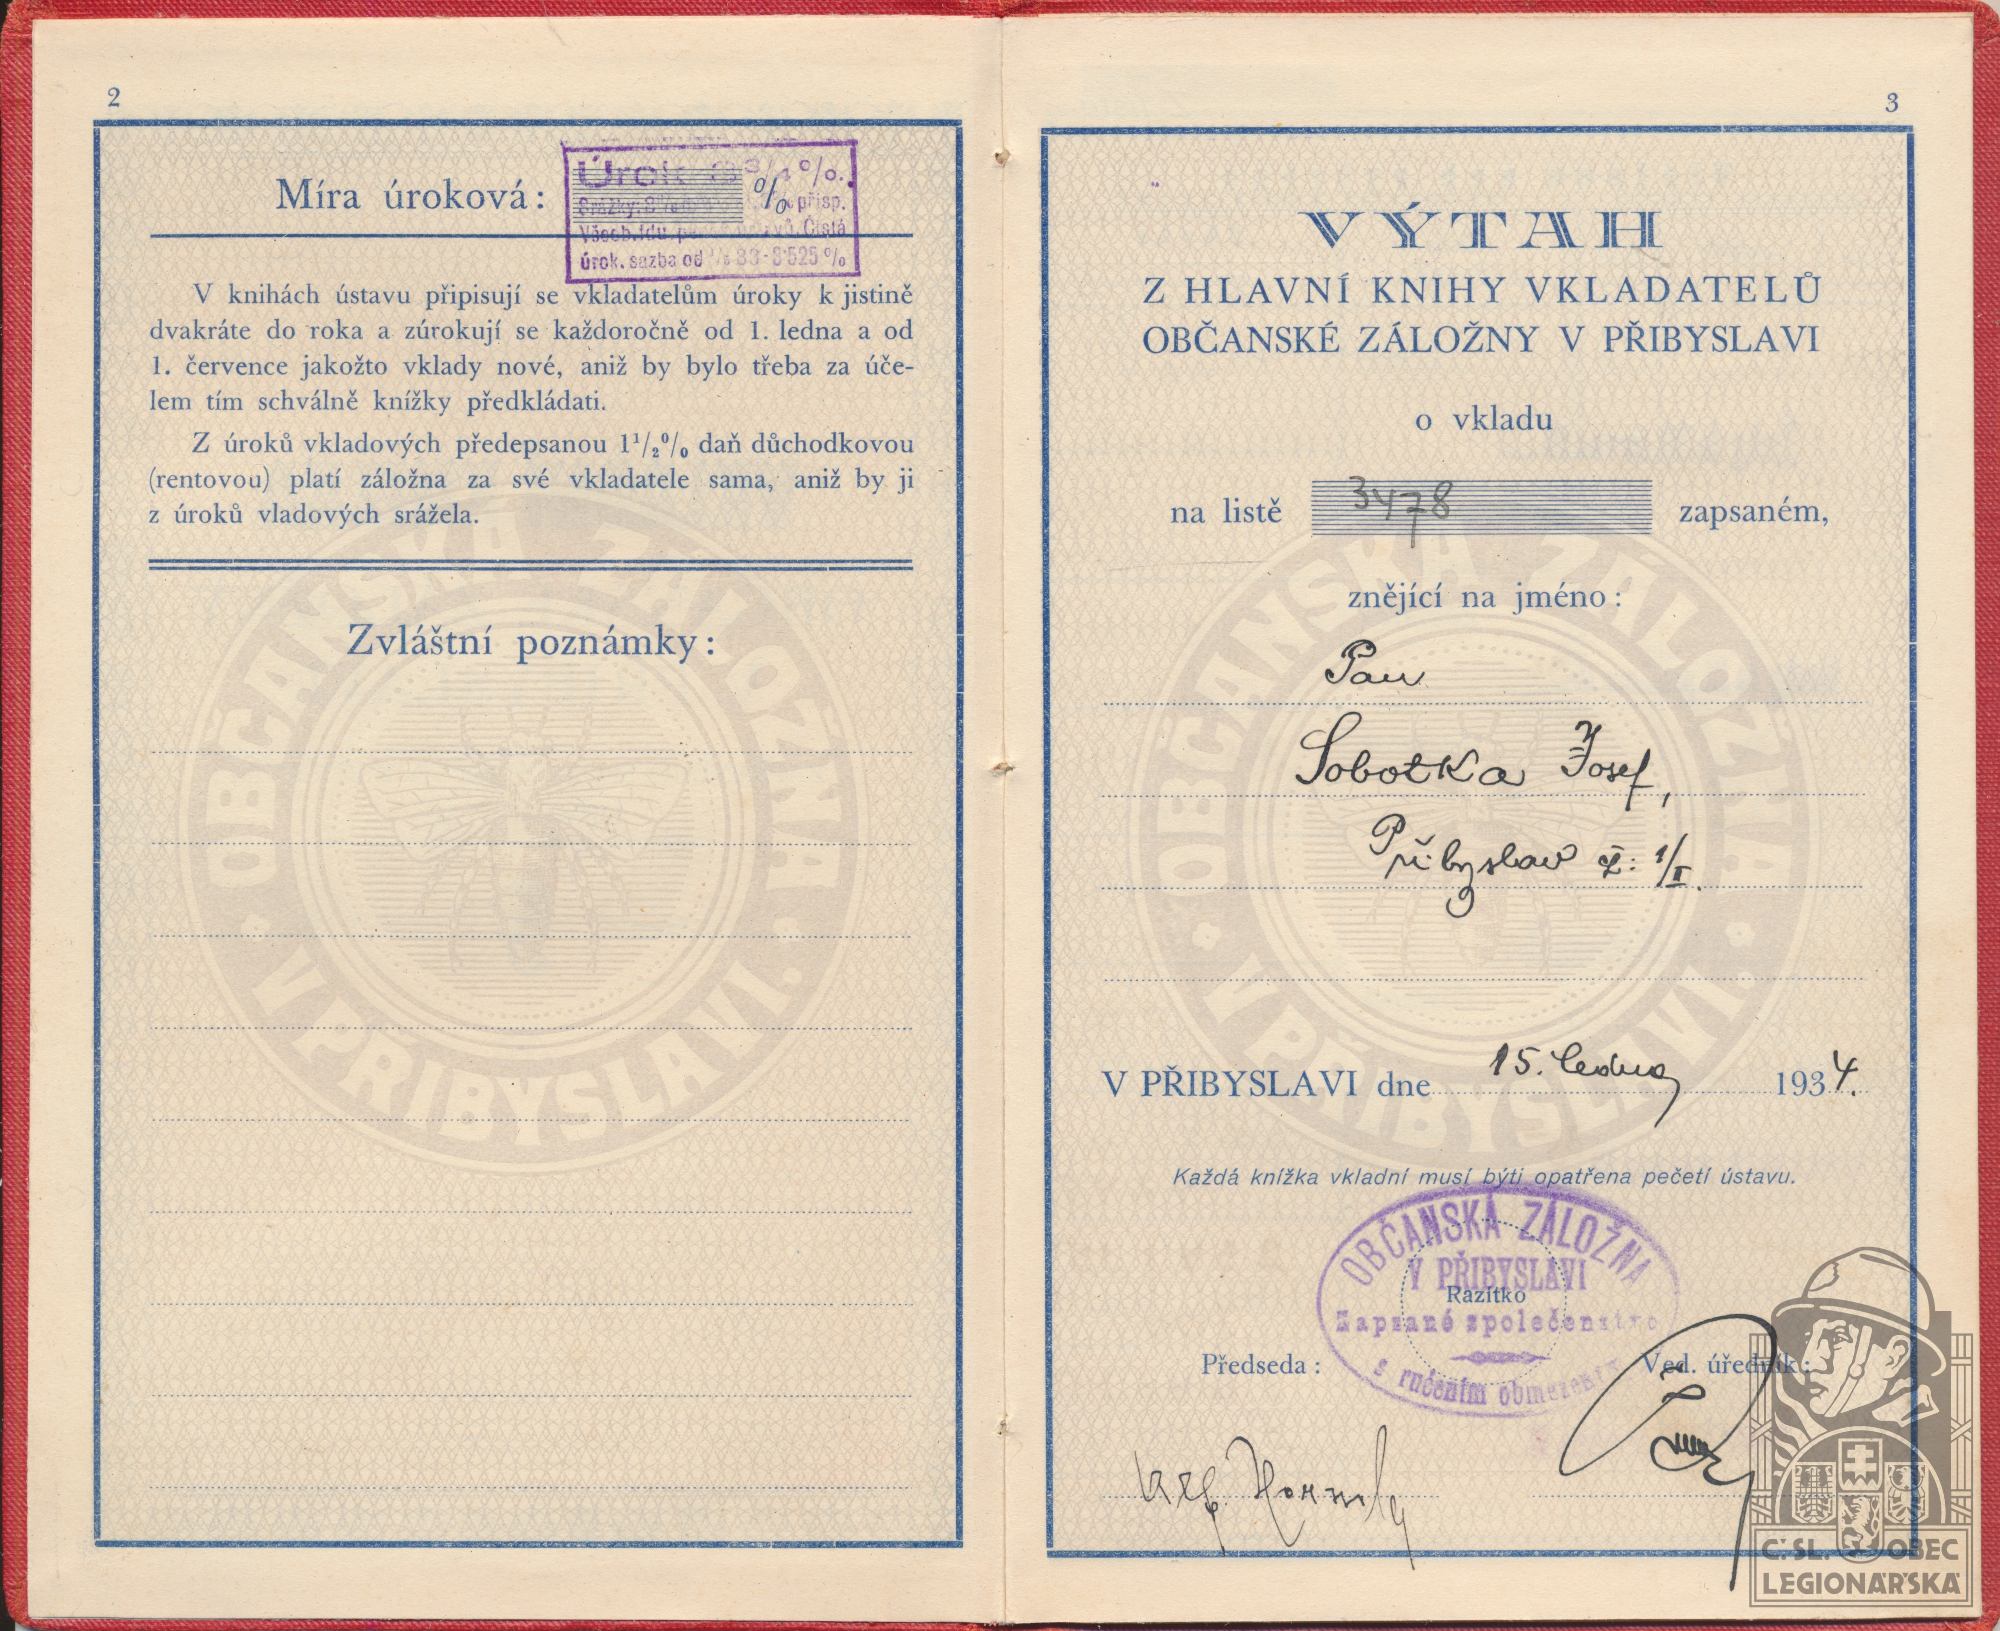 2
Míra úroková: %
Úrok 3 3/4 %.
přisp.
Čistá
úrok. sazba od 3·525 %
V knihách ústavu připisují se vkladatelům úroky k jistině
dvakráte do roka a zúrokují se každoročně od 1. ledna a od
1. července jakožto vklady nové, aniž by bylo třeba za úče-
lem tím schválně knížky předkládati.
Z úroků vkladových předepsanou 1½% daň důchodkovou
(rentovou) platí záložna za své vkladatele sama, aniž by ji
z úroků vladových srážela.
Zvláštní poznámky:
OBČANSKÁ ZÁLOŽNA
V PŘIBYSLAVI.
3
VÝTAH
Z HLAVNÍ KNIHY VKLADATELŮ
OBČANSKÉ ZÁLOŽNY V PŘIBYSLAVI
o vkladu
na listě 3478 zapsaném,
znějící na jméno:
Pan
Sobotka Josef,
Přibyslav č: 1/II.
OBČANSKÁ ZÁLOŽNA
V PŘIBYSLAVI.
V PŘIBYSLAVI dne 15. ledna 1934.
Každá knížka vkladní musí býti opatřena pečetí ústavu.
OBČANSKÁ ZÁLOŽNA
V PŘIBYSLAVI
Razítko
Zapsané společenstvo
s ručením obmezeným
Předseda: Ved. úředník:
Č. SL. OBEC
LEGIONÁŘSKÁ